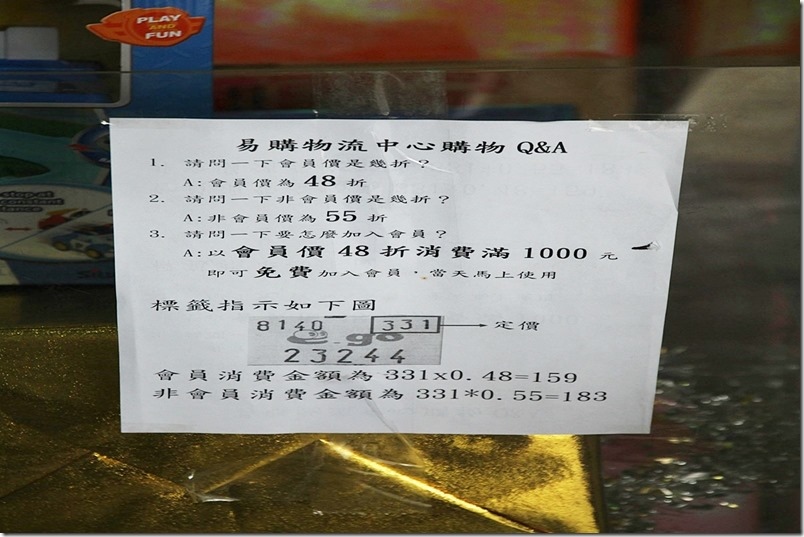 PLAY
AND
FUN
易購物流中心購物 Q&A
1. 請問一下會員價是幾折？
A:會員價為 48 折
2. 請問一下非會員價是幾折？
A:非會員價為 55 折
3. 請問一下要怎麼加入會員？
A:以會員價 48 折消費滿 1000 元
即可免費加入會員，當天馬上使用
標籤指示如下圖
8140 331 定價
e go
23244
會員消費金額為 331x0.48=159
非會員消費金額為 331*0.55=183
stop at
constant